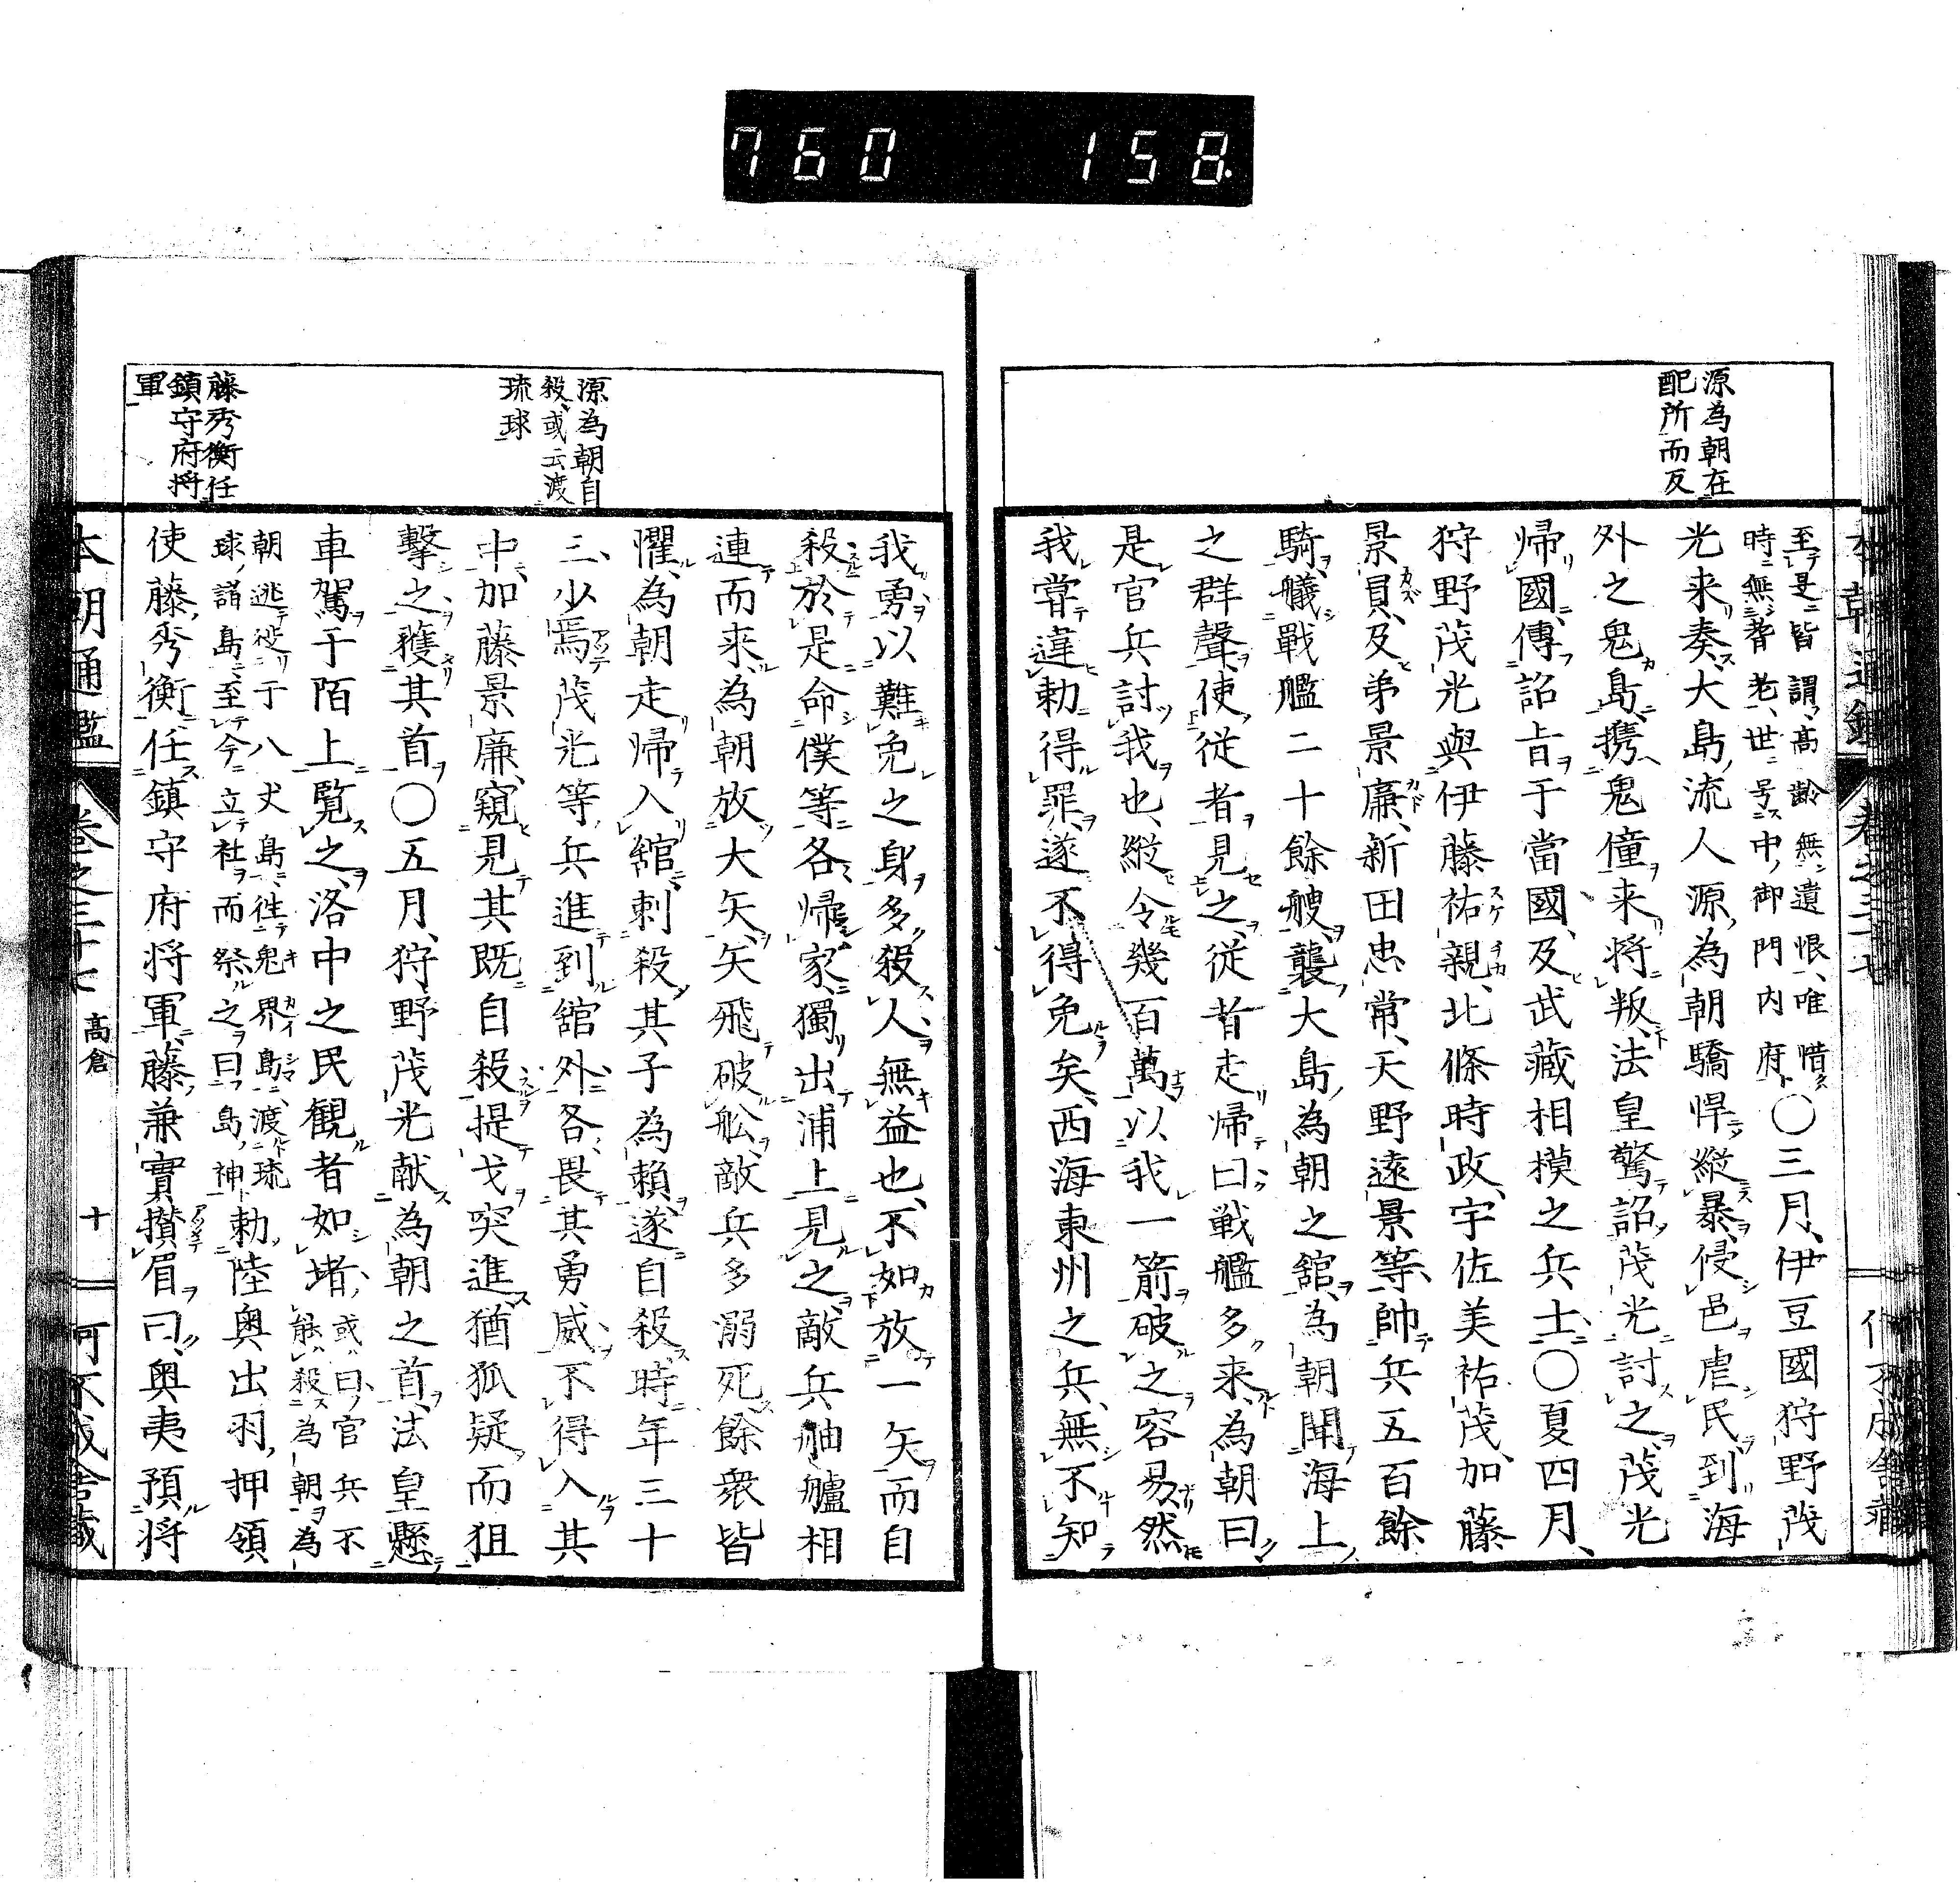 760 158.
源為朝在
配所而反
至是皆謂高齡無遺恨唯惜
時無耆老世号中御門内府
〇三月、伊豆國狩野茂
光来奏大島流人源為朝驕悍縱暴、侵邑虐民到海
外之鬼島、携鬼僮来将叛、法皇驚詔茂光討之、茂光
帰國、傳詔旨于當國、及武藏相摸之兵士〇夏四月、
狩野茂光與伊藤祐親、北條時政、宇佐美祐茂、加藤
景員、及弟景廉、新田忠常、天野遠景等、帥兵五百餘
騎、艤戰艦二十餘艘、襲大島為朝之舘、為朝聞海上
之群聲、使従者見之、従者走帰曰戦艦多来、為朝曰
是官兵討我也、縱令幾百萬以我一箭破之容易然
我嘗違勅得罪、遂不得免矣、西海東州之兵、無不知
源為朝自
殺、或云渡
琉球
藤秀衡任
鎮守府将
軍
我勇以難免之身多殺人無益也、不如放一矢而自
殺、於是命僕等各帰家、獨出浦上見之、敵兵舳艫相
連而来、為朝放大矢、矢飛破舩、敵兵多溺死、餘衆皆
懼、為朝走帰入舘、刺殺其子為賴、遂自殺時年三十
三、少焉茂光等兵進到舘外、各畏其勇威、不得入其
中、加藤景廉、窺見其既自殺、提戈突進猶狐疑而狙
擊之、獲其首〇五月、狩野茂光献為朝之首、法皇懸
車駕于陌上覧之、洛中之民観者如堵、
或曰官兵不
能殺為朝為
朝逃徙于八丈島、徃鬼界島、渡琉
球、諸島至今立社而祭之曰島神
勅陸奥出羽押領
使藤秀衡任鎮守府将軍、藤兼實攅眉曰、奥夷預将
本朝通鑑
卷之三十七
高倉
十